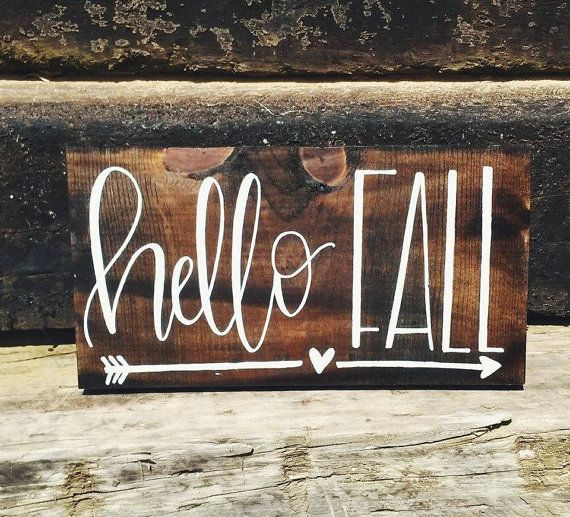 hello FALL